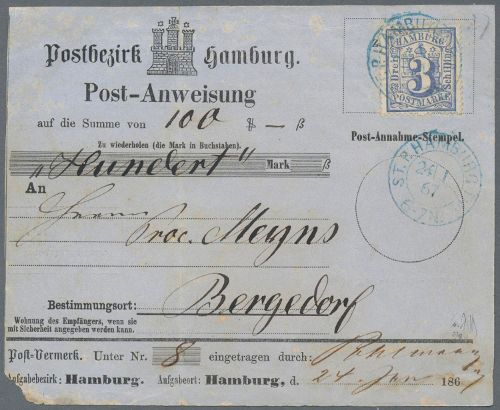 Postbezirk Hamburg.
HAMBURG
Drei Schilling
3
POSTMARKE
Post-Anweisung
auf die Summe von 100 ₰ — ß
Zu wiederholen (die Mark in Buchstaben).
„Hundert“ Mark ß
Post-Annahme-Stempel.
ST.P. HAMBURG
24 1
67
6-7N.
An
Herrn
Proc. Meyns
Bestimmungsort: Bergedorf
Wohnung des Empfängers, wenn sie
mit Sicherheit angegeben werden kann.
Post-Vermerk. Unter Nr. 8 eingetragen durch:
Aufgabebezirk: Hamburg. Aufgabeort: Hamburg, d. 24. Jan 186